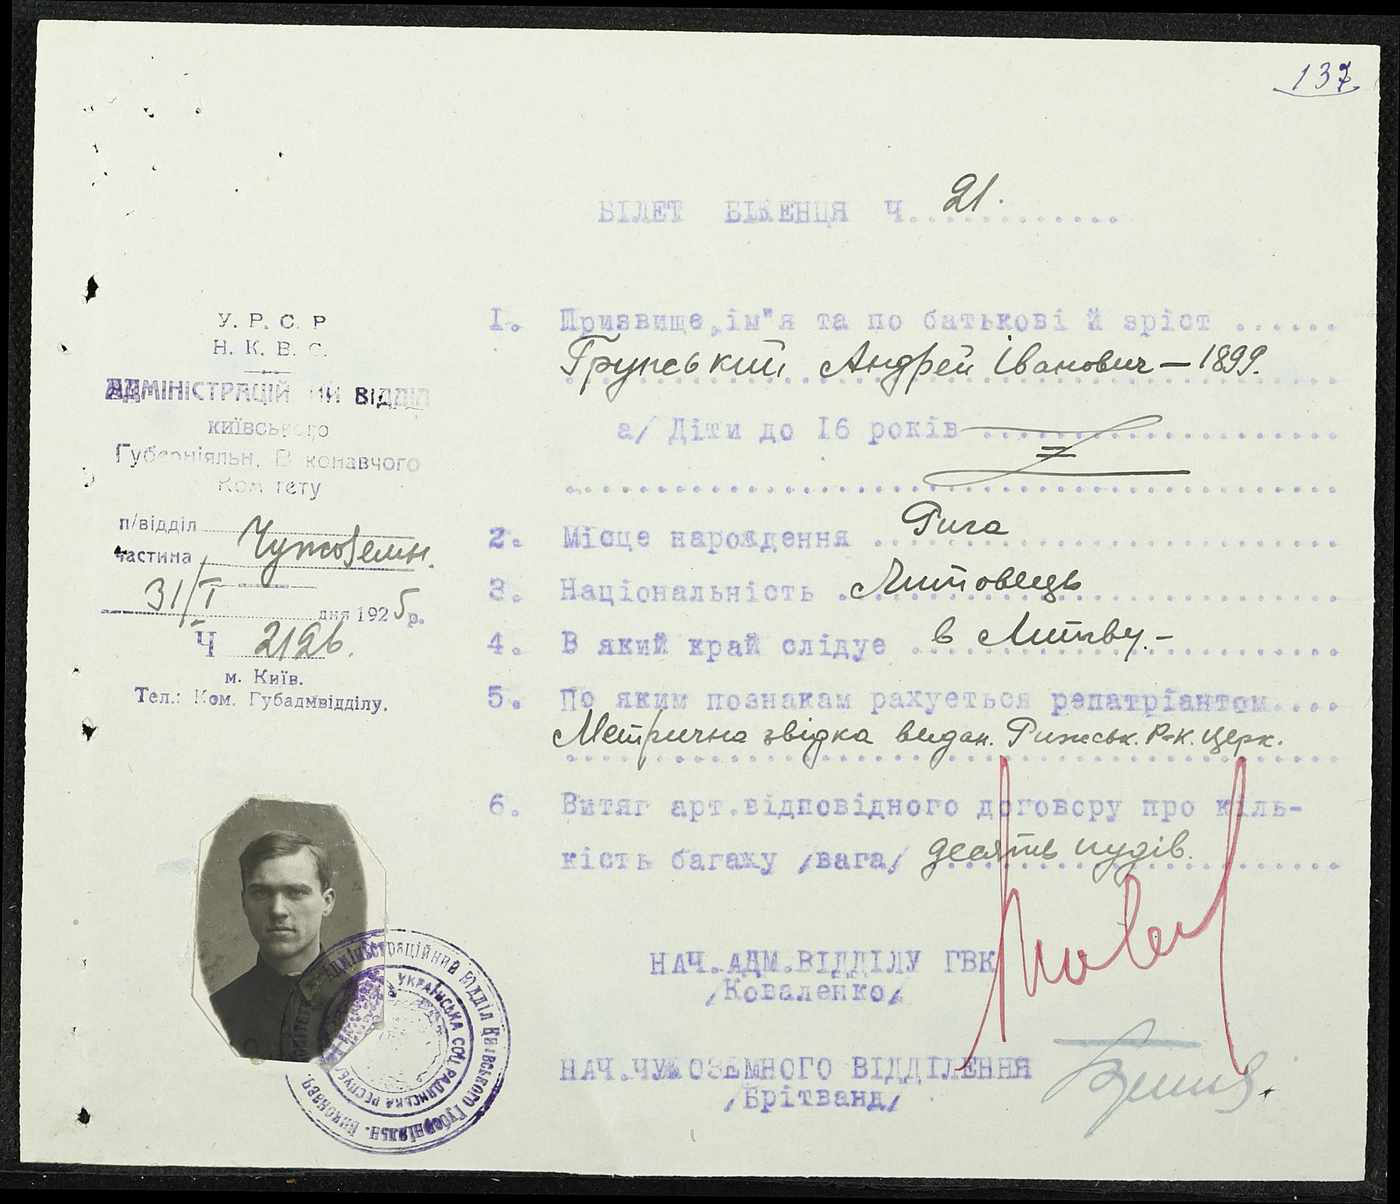 137
БІЛЕТ БІЖЕНЦЯ Ч. 21.
У. Р. С. Р
Н. К. В. С.
АДМІНІСТРАЦІЙНИЙ ВІДДІЛ
київського
Губерніяльн. Виконавчого
Комітету
п/відділ
частина Чужоземн.
31/I дня 1925 р.
Ч 2126.
м. Київ.
Тел.: Ком. Губадмвідділу.
1. Призвище, ім"я та по батькові й зріст ......
Грунський Андрей Іванович — 1899.
а/ Діти до 16 років
2. Місце нарождення Рига
3. Національність Литовець
4. В який край слідує в Литву. –
5. По яким познакам рахуеться репатріантом....
Метрична звідка видан. Рижськ. Р-К. церк.
6. Витяг арт.відповідного договору про кіль-
кість багаху /вага/ десять пудів.
НАЧ.АДМ.ВІДДІЛУ ГВК
/Коваленко/
НАЧ.ЧУЖОЗЕМНОГО ВІДДІЛЕННЯ
/Брітванд/
Адміністраційний відділ Київського Губерніяльн. Виконавч
УКРАЇНСЬКА СОЦ. РАДЯНСЬКА РЕСПУБ